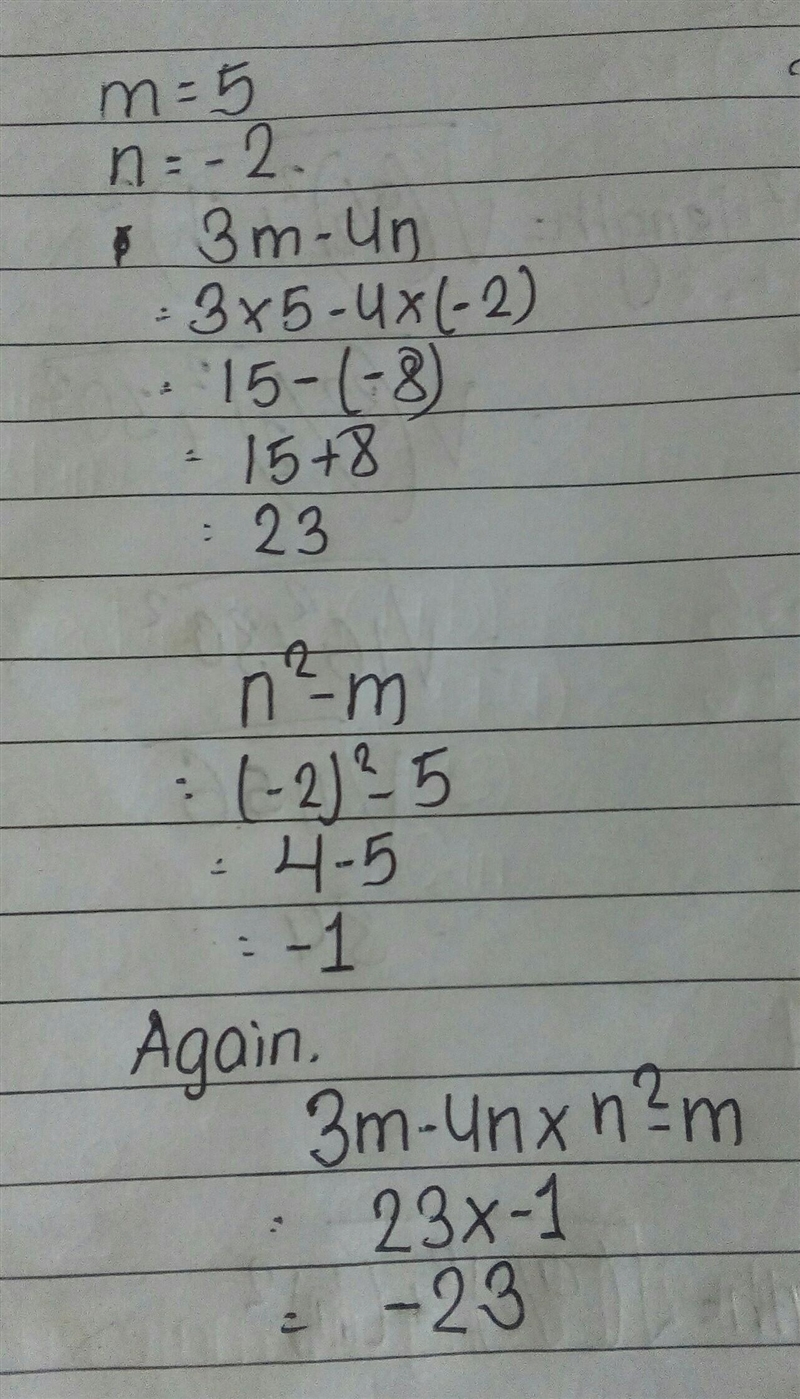 m = 5
n = - 2.
3m - 4n
= 3 × 5 - 4 × (-2)
= 15 - (-8)
= 15 + 8
= 23
n² - m
= (-2)² - 5
= 4 - 5
= -1
Again.
3m - 4n × n² - m
= 23 × -1
= -23